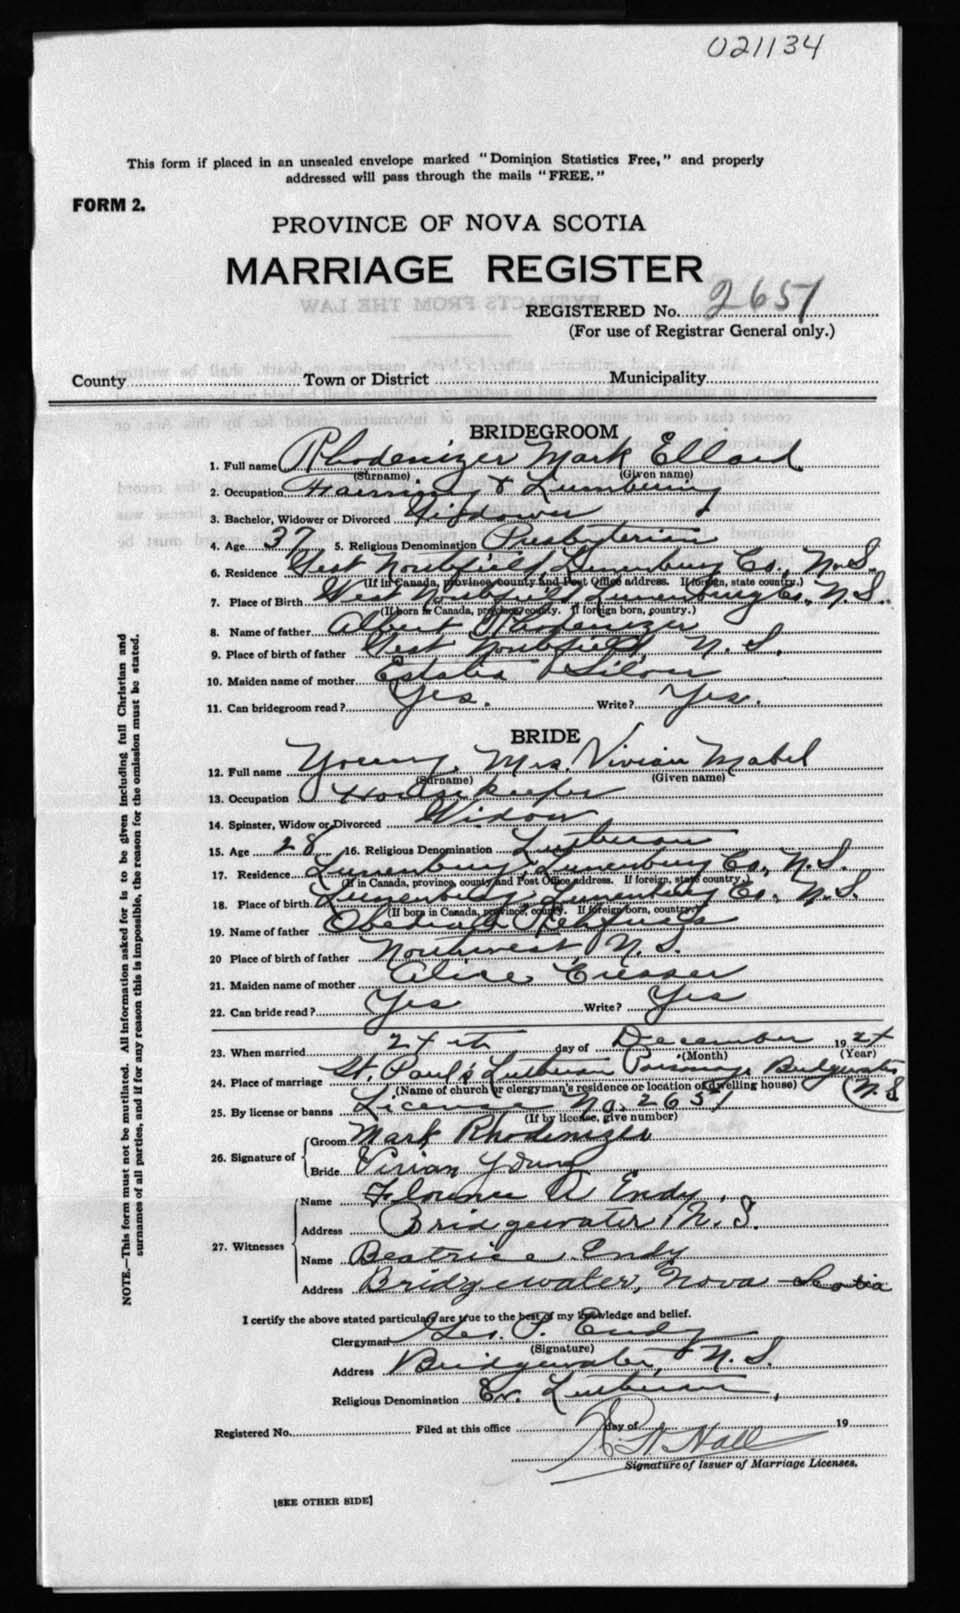 021134
This form if placed in an unsealed envelope marked "Dominion Statistics Free," and properly
addressed will pass through the mails "FREE."
FORM 2.
PROVINCE OF NOVA SCOTIA
MARRIAGE REGISTER
EXTRACTS FROM THE LAW
REGISTERED No. 2651
(For use of Registrar General only.)
County Town or District Municipality
BRIDEGROOM
1. Full name Rhodenizer Mark Ellard
(Surname) (Given name)
2. Occupation Farming & Lumbering
3. Bachelor, Widower or Divorced Widower
4. Age 37 5. Religious Denomination Presbyterian
6. Residence West Northfield, Lunenburg Co., N.S.
(If in Canada, province, county and Post Office address. If foreign, state country.)
7. Place of Birth West Northfield, Lunenburg Co., N.S.
(If born in Canada, province, county. If foreign born, country.)
8. Name of father Albert Rhodenizer
9. Place of birth of father West Northfield, N.S.
10. Maiden name of mother Silver
11. Can bridegroom read? Yes. Write? Yes.
BRIDE
12. Full name Young, Mrs Vivian Mabel
(Surname) (Given name)
13. Occupation Housekeeper
14. Spinster, Widow or Divorced Widow
15. Age 28 16. Religious Denomination Lutheran
17. Residence Lunenburg, Lunenburg Co., N.S.
(If in Canada, province, county and Post Office address. If foreign, state country.)
18. Place of birth Lunenburg, Lunenburg Co., N.S.
(If born in Canada, province, county. If foreign born, country.)
19. Name of father Obediah Rehfuss
20 Place of birth of father Northwest, N.S.
21. Maiden name of mother Alice
22. Can bride read? Yes Write? Yes
23. When married 24th day of December 1924
(Month) (Year)
24. Place of marriage St. Paul's Lutheran Parsonage Bridgewater
(Name of church or clergyman's residence or location of dwelling house) N.S
25. By license or banns License No. 2651
(If by license, give number)
26. Signature of
Groom Mark Rhodenizer
Bride Vivian Young
27. Witnesses
Name Florence A Endy.
Address Bridgewater, N.S.
Name Beatrice Endy
Address Bridgewater, Nova Scotia
I certify the above stated particulars are true to the best of my knowledge and belief.
Clergyman Geo. P. Endy
(Signature)
Address Bridgewater, N.S.
Religious Denomination Ev. Lutheran,
Registered No. Filed at this office day of 19
Hall
Signature of Issuer of Marriage Licenses.
[SEE OTHER SIDE]
NOTE.—This form must not be mutilated. All information asked for is to be given including full Christian and
surnames of all parties, and if for any reason this is impossible, the reason for the omission must be stated.